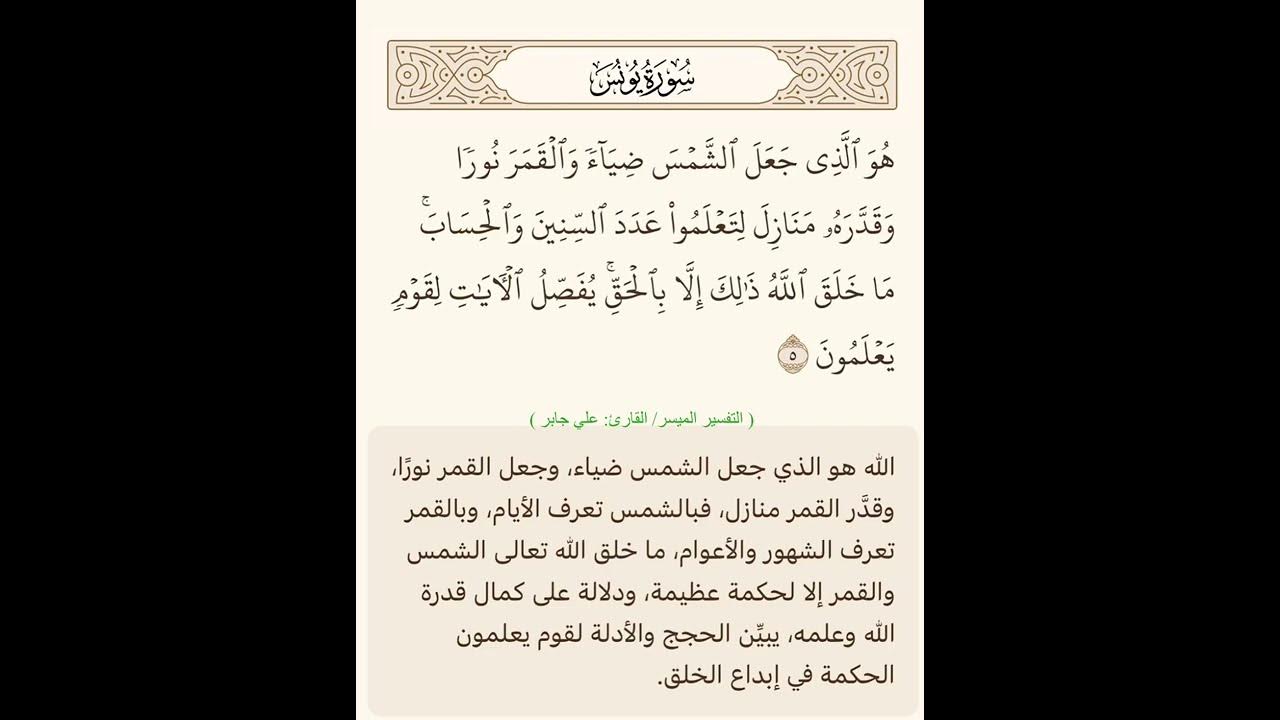 سُورَةُ يُونُسَ
هُوَ ٱلَّذِى جَعَلَ ٱلشَّمْسَ ضِيَآءً وَٱلْقَمَرَ نُورًا
وَقَدَّرَهُۥ مَنَازِلَ لِتَعْلَمُوا۟ عَدَدَ ٱلسِّنِينَ وَٱلْحِسَابَ ۚ
مَا خَلَقَ ٱللَّهُ ذَٰلِكَ إِلَّا بِٱلْحَقِّ ۚ يُفَصِّلُ ٱلْـَٔايَـٰتِ لِقَوْمٍ
يَعْلَمُونَ ٥
( التفسير الميسر/ القارئ: علي جابر )
الله هو الذي جعل الشمس ضياء، وجعل القمر نورًا،
وقدَّر القمر منازل، فبالشمس تعرف الأيام، وبالقمر
تعرف الشهور والأعوام، ما خلق الله تعالى الشمس
والقمر إلا لحكمة عظيمة، ودلالة على كمال قدرة
الله وعلمه، يبيِّن الحجج والأدلة لقوم يعلمون
الحكمة في إبداع الخلق.